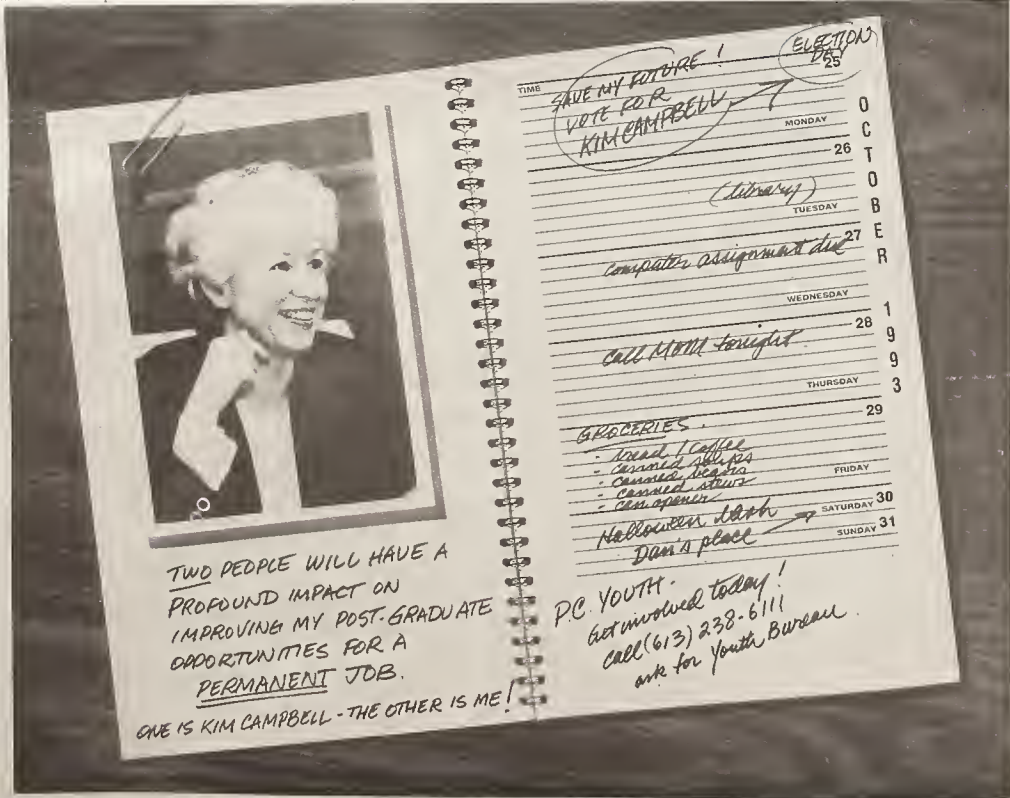 TWO PEOPLE WILL HAVE A
PROFOUND IMPACT ON
IMPROVING MY POST-GRADUATE
OPPORTUNITIES FOR A
PERMANENT JOB.
ONE IS KIM CAMPBELL - THE OTHER IS ME!
ELECTION
DAY
25
TIME
SAVE MY FUTURE!
VOTE FOR
KIM CAMPBELL
MONDAY
26
(library)
TUESDAY
27
computer assignment due
WEDNESDAY
28
call MOM tonight.
THURSDAY
29
GROCERIES.
- bread / coffee
- canned soups
- canned beans
- canned stews
- can opener
FRIDAY
Halloween bash
SATURDAY 30
Dan's place
SUNDAY 31
OCTOBER 1993
P.C. YOUTH.
Get involved today!
call (613) 238-6111
ask for Youth Bureau.